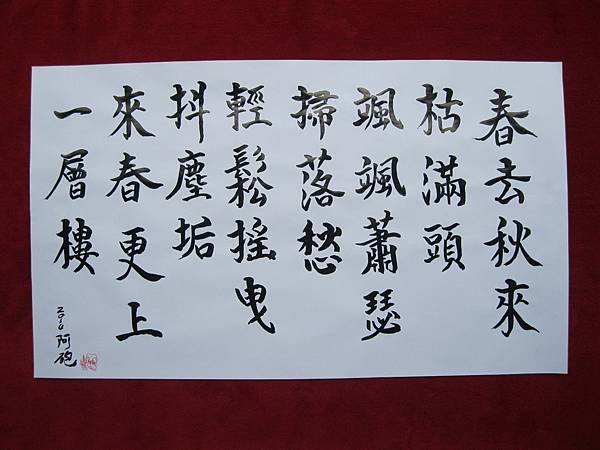 春去秋來
枯滿頭
颯颯蕭瑟
掃落愁
輕鬆搖曳
抖塵垢
來春更上
一層樓
阿砲